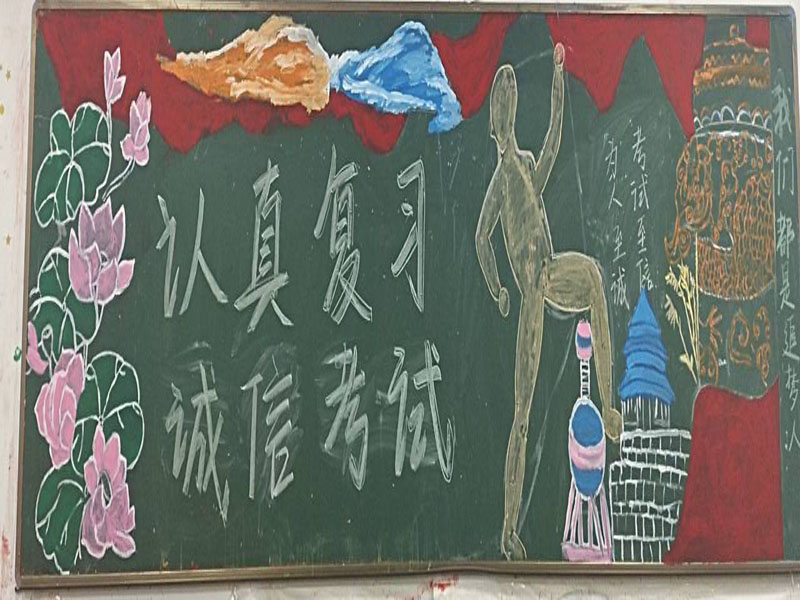 认真复习
诚信考试
考试至信
为人至诚
我们都是追梦人